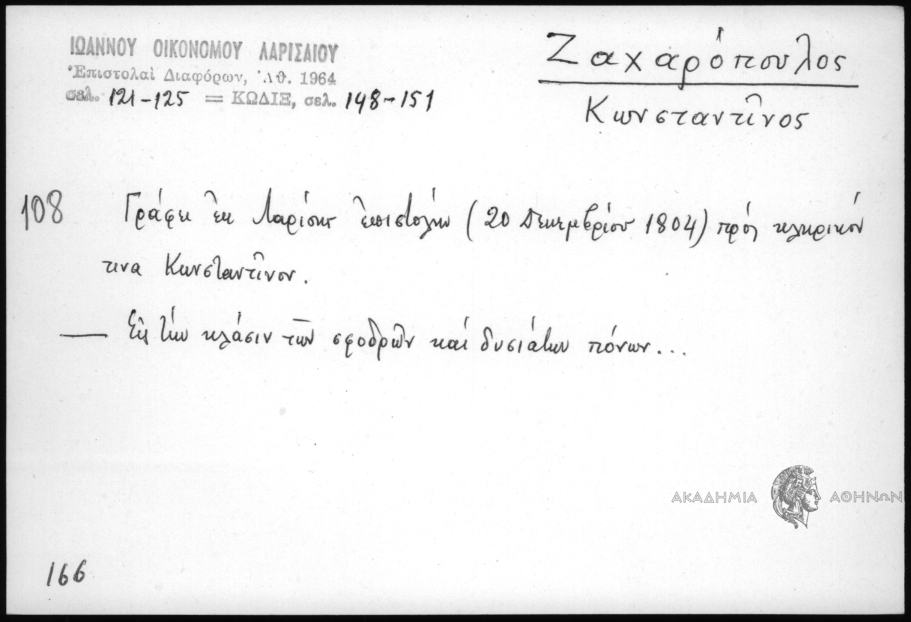 ΙΩΑΝΝΟΥ ΟΙΚΟΝΟΜΟΥ ΛΑΡΙΣΑΙΟΥ
Ἐπιστολαὶ Διαφόρων, Ἀθ. 1964
σελ. 121-125 = ΚΩΔΙΞ, σελ. 148-151
Ζαχαρόπουλος
Κωνσταντῖνος
108 Γράφει ἐκ Λαρίσης ἐπιστολὴν (20 Δεκεμβρίου 1804) πρός κληρικόν
τινα Κωνσταντῖνον.
— Εἰς τὴν κλάσιν τῶν σφοδρῶν καί δυσιάτων πόνων...
ΑΚΑΔΗΜΙΑ ΑΘΗΝΩΝ
166